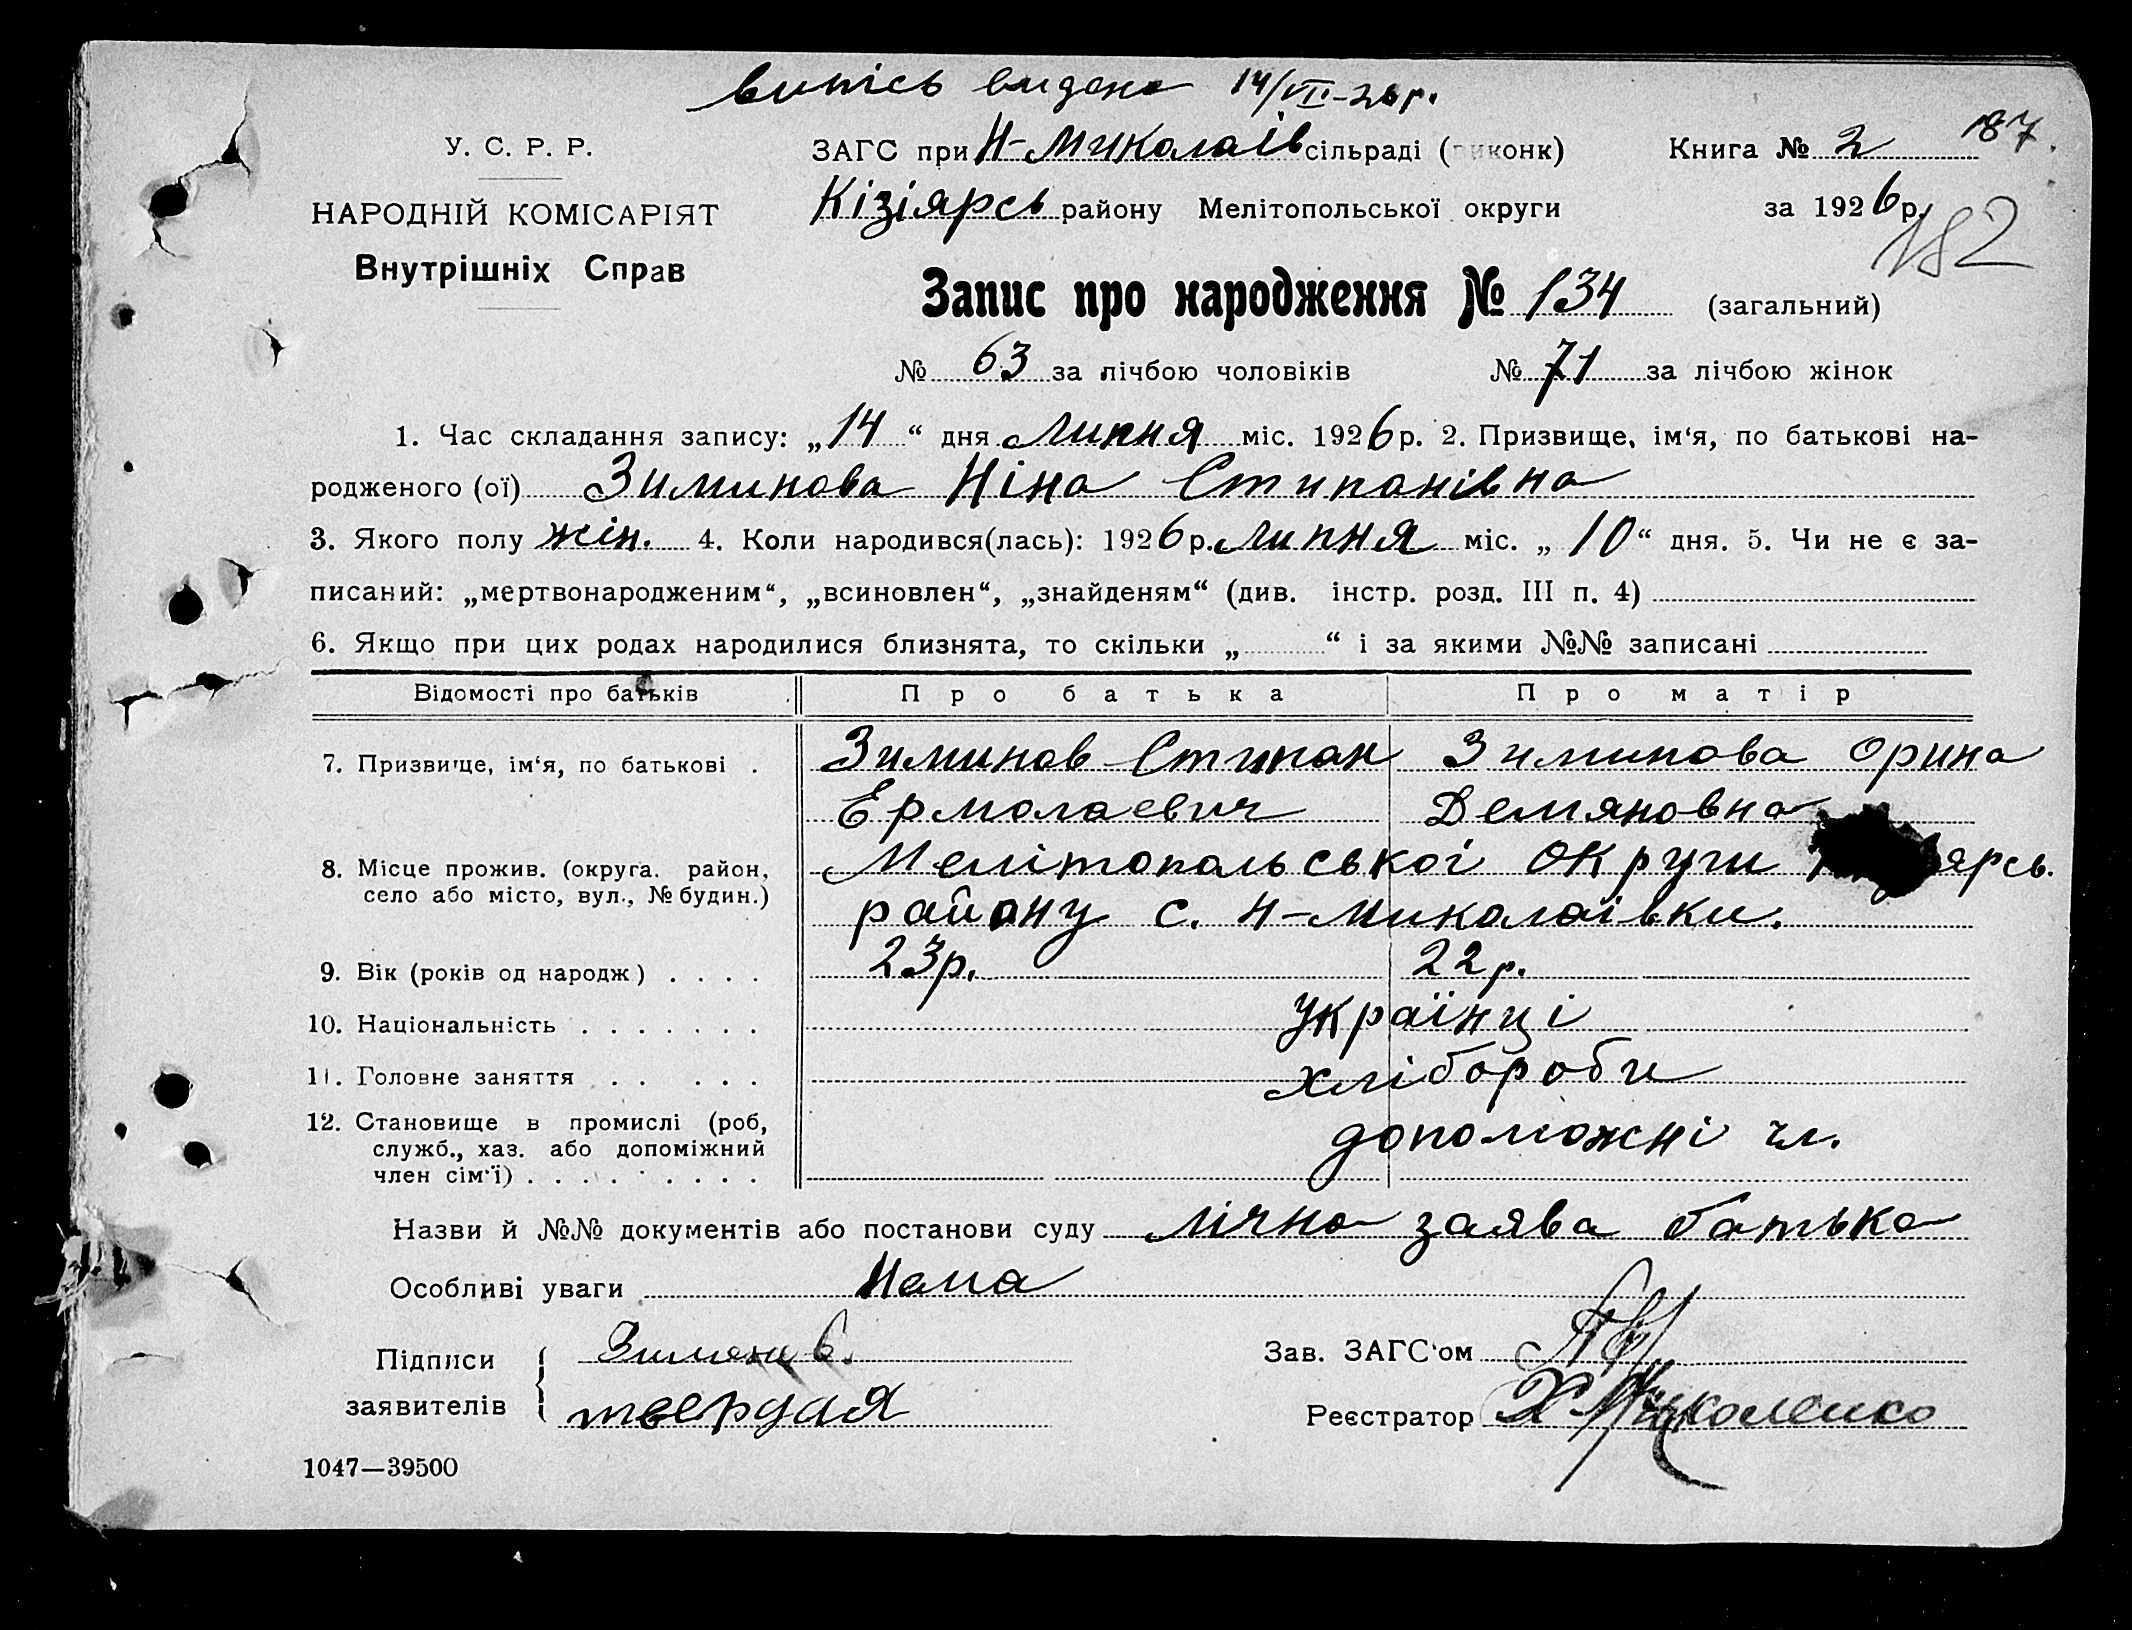 випісь видана 14/VII-26 р.
187.
У. С. Р. Р.
ЗАГС при Н-Миколаїв сільраді (виконк)
Книга № 2
НАРОДНІЙ КОМІСАРІЯТ
Кізіярсь району Мелітопольської округи
за 1926 р.
182
Внутрішніх Справ
Запис про народження № 134 (загальний)
№ 63 за лічбою чоловіків № 71 за лічбою жінок
1. Час складання запису: „14“ дня Липня міс. 1926 р. 2. Призвище, ім‘я, по батькові на-
родженого (ої) Зиминова Ніна Стипанівна
3. Якого полу жін. 4. Коли народився(лась): 1926 р. Липня міс. „10“ дня. 5. Чи не є за-
писаний: „мертвонародженим“, „всиновлен“, „знайденям“ (див. інстр. розд. III п. 4)
6. Якщо при цих родах народилися близнята, то скільки „ “ і за якими №№ записані
Відомості про батьків Про батька Про матір
7. Призвище, ім‘я, по батькові . Зиминов Стипан Зиминова Орина
Ермолаевич Демяновна
8. Місце прожив. (округа. район, Мелітопольської Округи ярсь.
село або місто, вул., № будин.) району с. Н-Миколаївки.
9. Вік (років од народж) . . . . 23р. 22р.
10. Національність . . . . . . . Українці
11. Головне заняття . . . . . . хлібороби
12. Становище в промислі (роб, допоможні чл.
служб., хаз. або допоміжний
член сім‘ї) . . . . . . . . .
Назви й №№ документів або постанови суду лічна заява батька
Особливі уваги Нема
Підписи Зиминов.
Зав. ЗАГС‘ом
заявителів твердая
Реєстратор Х Миколенко
1047—39500